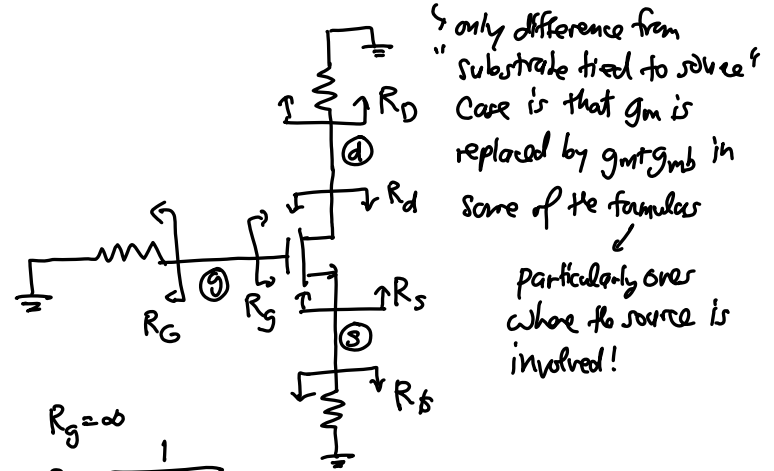 ↳ only difference from
"substrate tied to source"
case is that gm is
replaced by gm+gmb in
some of the formulas
particularly ones
where the source is
involved!
RD
d
Rd
g
RG
Rg
Rs
s
Rg = ∞
1